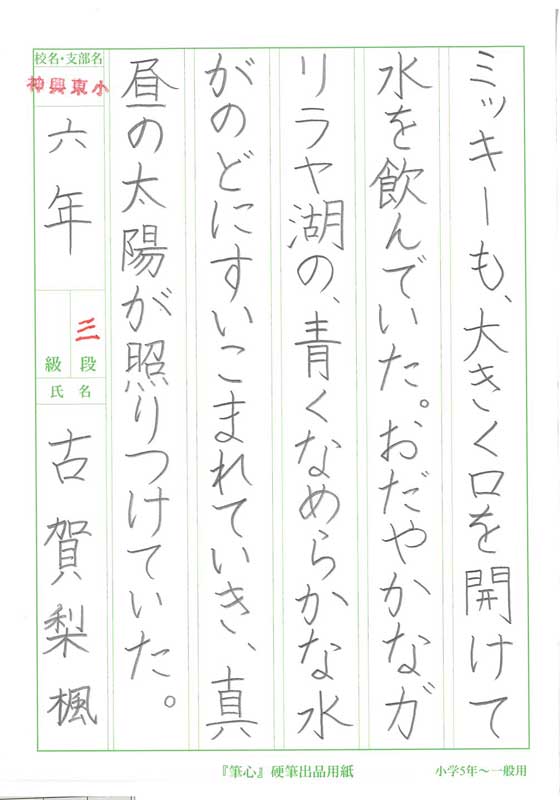 ミッキーも、大きく口を開けて
水を飲んでいた。おだやかなガ
リラヤ湖の、青くなめらかな水
がのどにすいこまれていき、真
昼の太陽が照りつけていた。
校名・支部名
神興東小
六年
三
級 段
氏 名
古賀梨楓
『筆心』硬筆出品用紙
小学5年～一般用